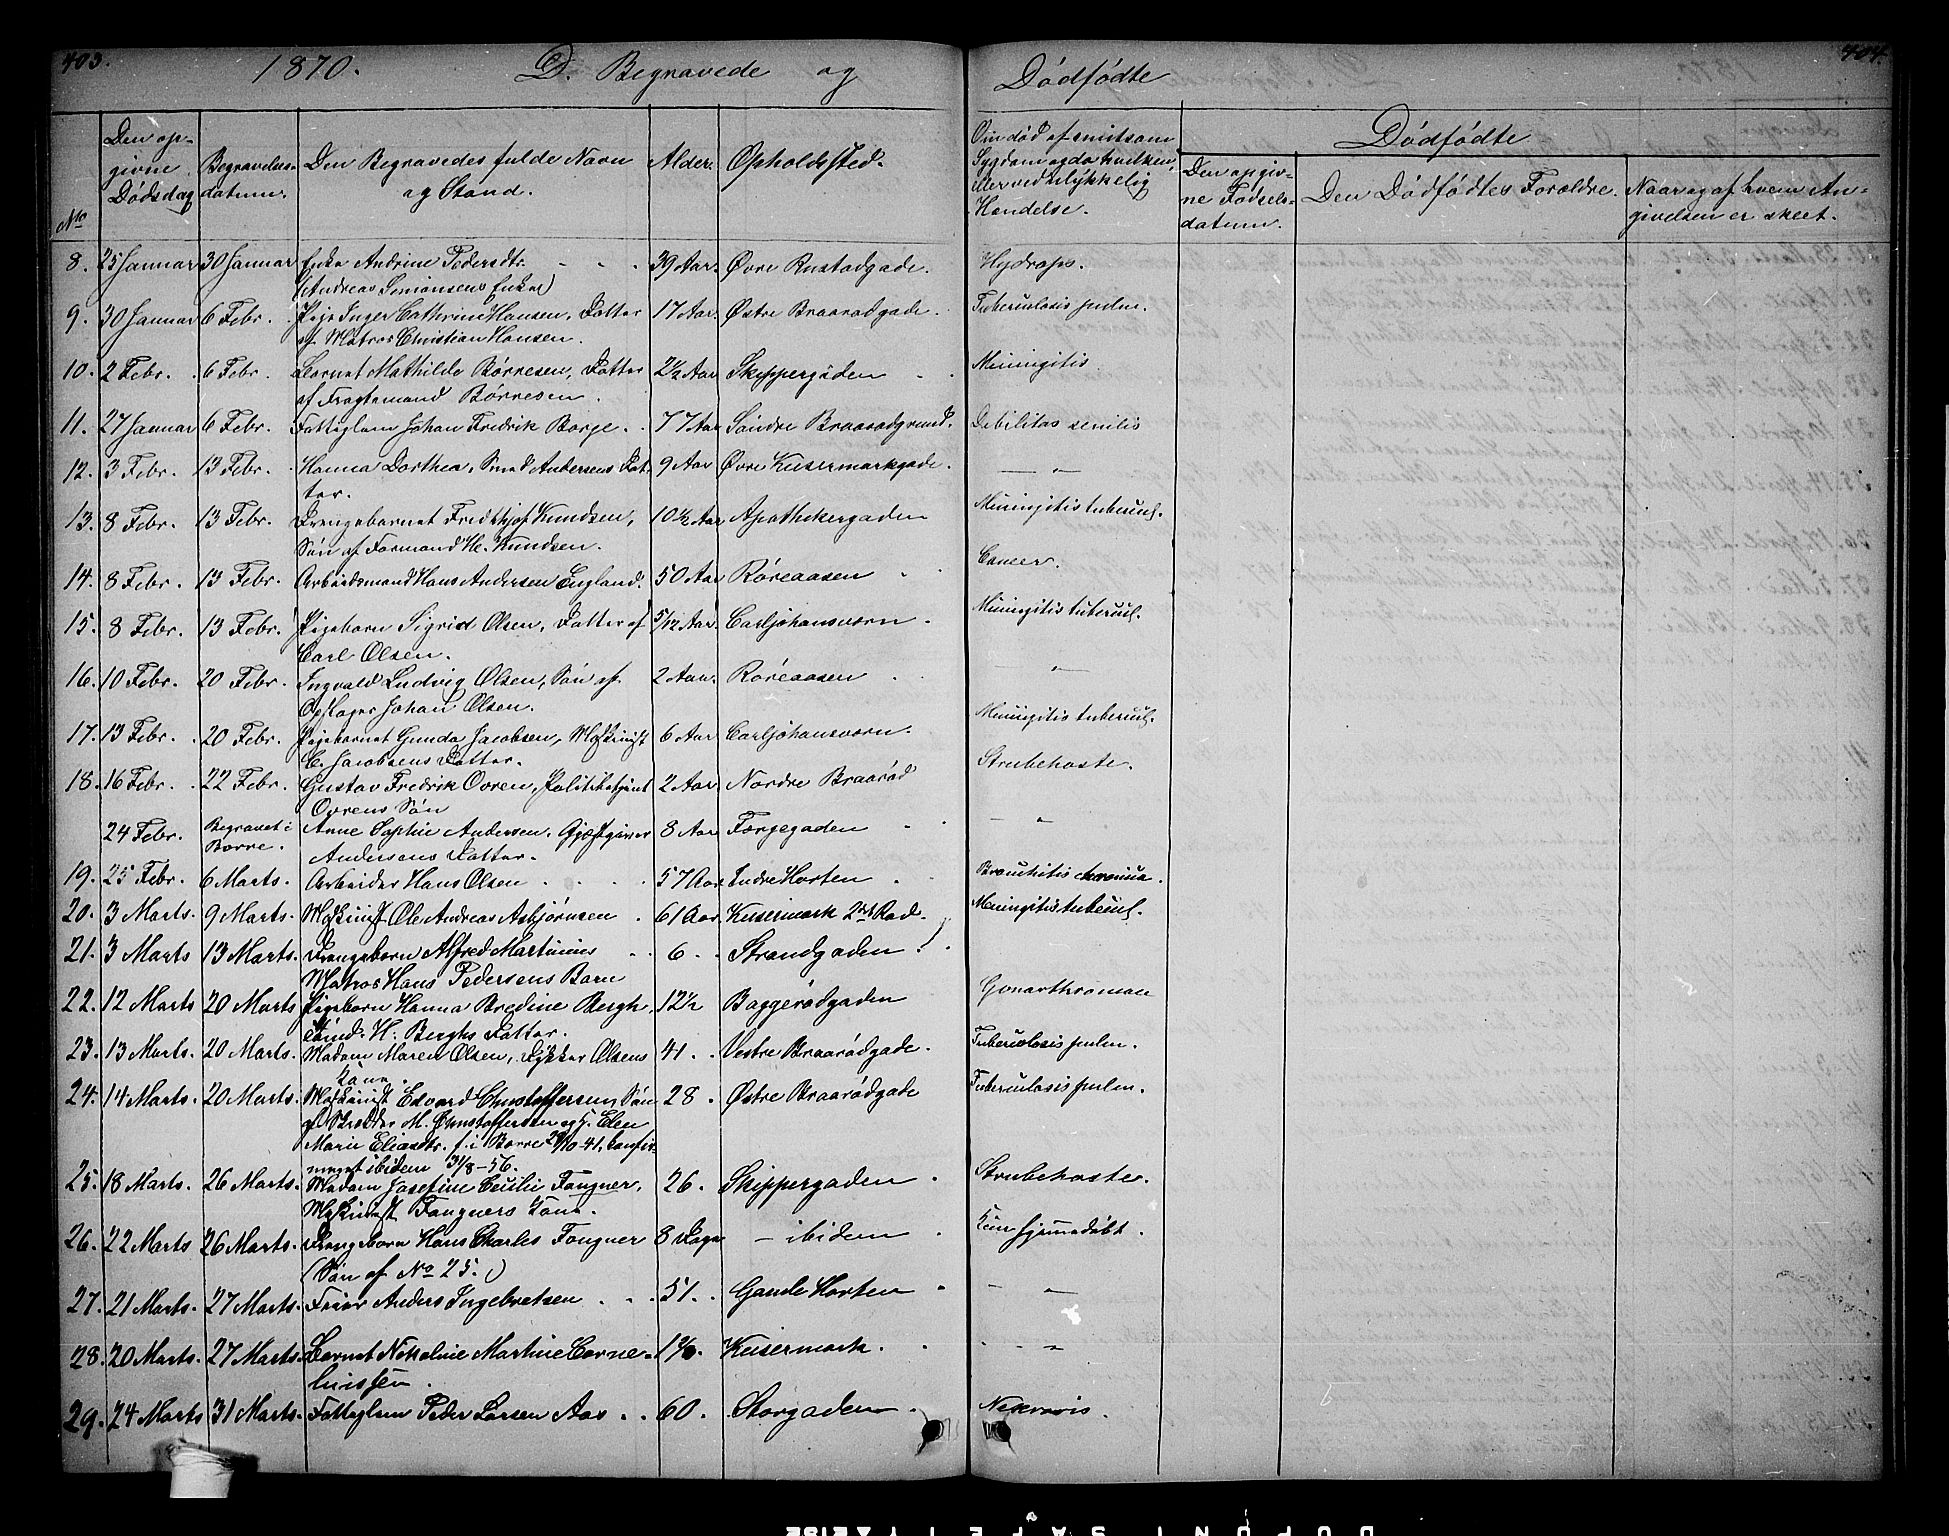 403.
1870. D. Begravede og Dødfødte
404.
No
Den opgivne Dødsdag
Begravelsesdatum.
Den Begravedes fulde Navn og Stand.
Alder.
Opholdssted.
Om død af smitsom Sygdom og da hvilken, eller ved ulykkelig Hendelse.
Dødfødte
Den opgivne Fødselsdatum.
Den Dødfødtes Forældre.
Naar og af hvem Angivelsen er skeet.
8. 25 Januar 30 Januar Enke Andrine Pedersdtr. 39 Aar. Øvre Rustadgade. Hydrops.
(Andreas Simonsens Enke)
9. 30 Januar 6 Febr. Pige Inger Cathrine Hansen, Datter 17 Aar. Østre Braarødgade. Tuberculosis pulm.
af Matros Christian Hansen.
10. 2 Febr. 6 Febr. Barnet Mathilde Børresen, Datter 2½ Aar Skippergaden Meningitis
af Fragtemand Børresen.
11. 27 Januar 6 Febr. Fattiglem Johan Fredrik Borge. 77 Aar Søndre Braarødgrund. Debilitas senilis
12. 3 Febr. 13 Febr. Hanna Dorthea, Smed Andersens Dat- 9 Aar Øvre Keisermarkgade. — " —
ter.
13. 8 Febr. 13 Febr. Drengebarnet Fredthjof Knudsen, 10½ Aar Apothekergaden Meningitis tubercul.
Søn af Formand H. Knudsen.
14. 8 Febr. 13 Febr. Arbeidsmand Hans Andersen England. 50 Aar Røreaasen Cancer.
15. 8 Febr. 13 Febr. Pigebarn Sigrid Olsen, Datter af 5/12 Aar Carljohansværn. Meningitis tubercul.
Carl Olsen.
16. 10 Febr. 20 Febr. Ingvald Ludvig Olsen, Søn af 2 Aar. Røreaasen — " —
Opslager Johan Olsen.
17. 13 Febr. 20 Febr. Pigebarnet Gunda Jacobsen, Maskinist 6 Aar Carljohansværn. Meningitis tubercul.
C. Jacobsens Datter.
18. 16 Febr. 22 Febr. Gustav Fredrik Ovren, Politibetjent 2 Aar Nordre Braarød Strubehoste.
Ovrens Søn
24 Febr. Begravet i Borre. Anne Sophie Andersen, Gjæstgiver 8 Aar Færgegaden — "
Andersens Datter.
19. 25 Febr. 6 Marts. Arbeider Hans Olsen 57 Aar Indre Horten Bronchitis chronica.
20. 3 Marts. 9 Marts. Maskinist Ole Andreas Asbjørnsen 61 Aar Keisermark 2den Rad. Meningitis tubercul.
21. 3 Marts 13 Marts. Drengebarn Alfred Martinius 6 Strandgaden
Matros Hans Pedersens Barn
22. 12 Marts 20 Marts Pigebarn Hanna Bredine Bergh, 12½ Baggerødgaden Gonarthroman
Tømd. H. Berghs Datter.
23. 13 Marts. 20 Marts. Madam Maren Olsen, Dykker Olsens 41. Vestre Braarødgade. Tuberculosis pulm.
Kone.
24. 14 Marts. 20 Marts. Maskinist Edvard Christoffersen, Søn 28. Østre Braarødgade Tuberculosis pulm.
af Brodder M. Christoffersen og H. Elen
Marie Eliasdtr. f. i Borre 29/10 41, konfir-
meret ibidem 31/8-56.
25. 18 Marts. 26 Marts. Madam Josefine Cecilie Fougner, 26. Skippergaden Strubehoste.
Maskinist Fougners Kone.
26. 22 Marts 26 Marts. Drengebarn Hans Charles Fougner 8 Dage — ibidem Kun hjemmedøbt.
(Søn af No 25.)
27. 21 Marts. 27 Marts. Feier Anders Ingebretsen 51. Gamle Horten — " —
28. 20 Marts. 27 Marts. Barnet Nikoline Martine Corne- Keisermark. — " —
liussen.
29. 24 Marts 31 Marts. Fattiglem Peder Larsen Aas 60. Storgaden Nekrosis.